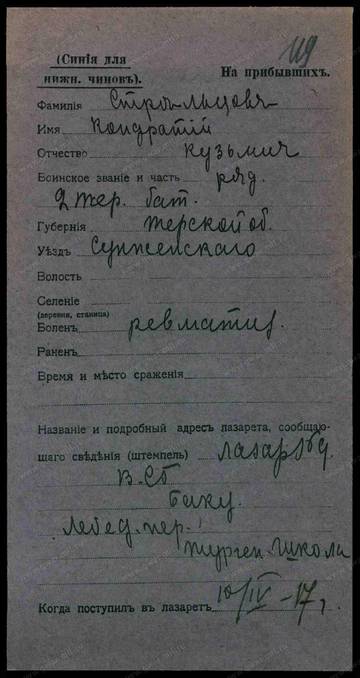 119
(Синія для
нижн. чиновъ).
На прибывшихъ.
Фамилія Стрѣльцовъ
Имя Кондратій
Отчество Кузьмич
Воинское званіе и часть ряд.
2 тер. бат.
Губернія Терской об.
Уѣздъ Сунженскаго
Волость
Селеніе
(деревня, станица)
Боленъ ревматиз.
Раненъ
Время и мѣсто сраженія
Названіе и подробный адресъ лазарета, сообщаю-
щаго свѣдѣнія (штемпель) Лазар
Баку.
Лебед. пер.
Турген. школа
Когда поступилъ въ лазаретъ 10/IV - 17 г.